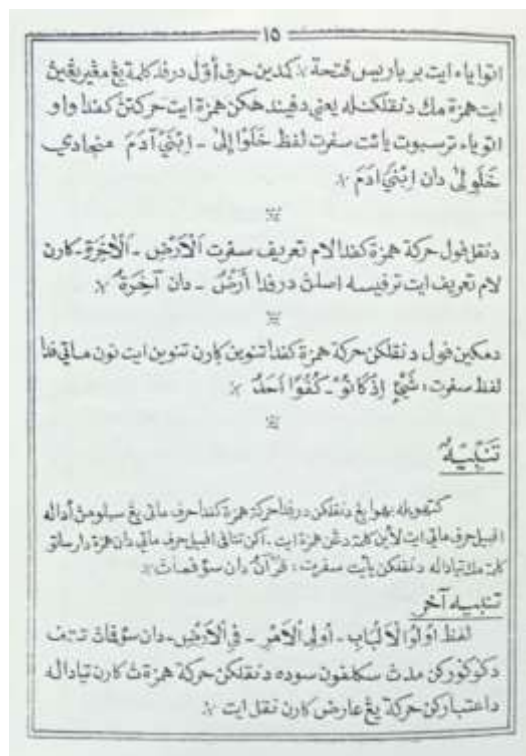 ١٥
اتوا ياء ايت بر باريس فتحة ٪ كمدين حرف أوّل درفد كلمة يڠ مڠيريڠڽ
ايت همزة مك دنقلكنله يعني دڤيندهكن همزة ايت حركتڽ كفد واو
اتو ياء ترسبوت يائت سڤرت لفظ خَلَوْا إِلىٰ - اِبْنَيْ آدَمَ منجادي
خَلَوِلىٰ دان اِبْنَيَادَمَ ٪
دنقل ڤول حركة همزة كفدا لام تعريف سڤرت اَلْاَرْضِ - اَلْاٰخِرَةِ - كارن
لام تعريف ايت ترڤيسه اصلڽ درفدا أَرْضٌ - دان آخِرَةٌ ٪
دمكين ڤول دنقلكن حركة همزة كفدا تنوين كارن تنوين ايت نون ماتي ڤدا
لفظ سڤرت : شَيْءٍ اِذْ كَانُوْ - كُفُوًا اَحَدٌ ٪
تَنْبِيْهٌ
كتهويله بهوا يڠ دنقلكن درفدا حركة همزة كفدا حرف ماتي يڠ سبلومڽ أداله
افبيل حرف ماتي ايت لأين كلمة دڠن همزة ايت - اكن تتافي افبيل حرف ماتي دان همزة دار ساتو
كلمة مك تياداله دنقلكن يائت سڤرت : قُرْآنُ دان سڤماڽ ٪
تنبيه آخر
لفظ اُولُوا الْاَلْبَابِ - اُولِى الْاَمْرِ - فِى الْاَرْضِ - دان سڤماڽ تتف
دكوڬوركن مدڽ سكالڤون سوده دنقلكن حركة همزةڽ كارن تياداله
داعتباركن حركة يڠ عارض كارن نقل ايت ٪